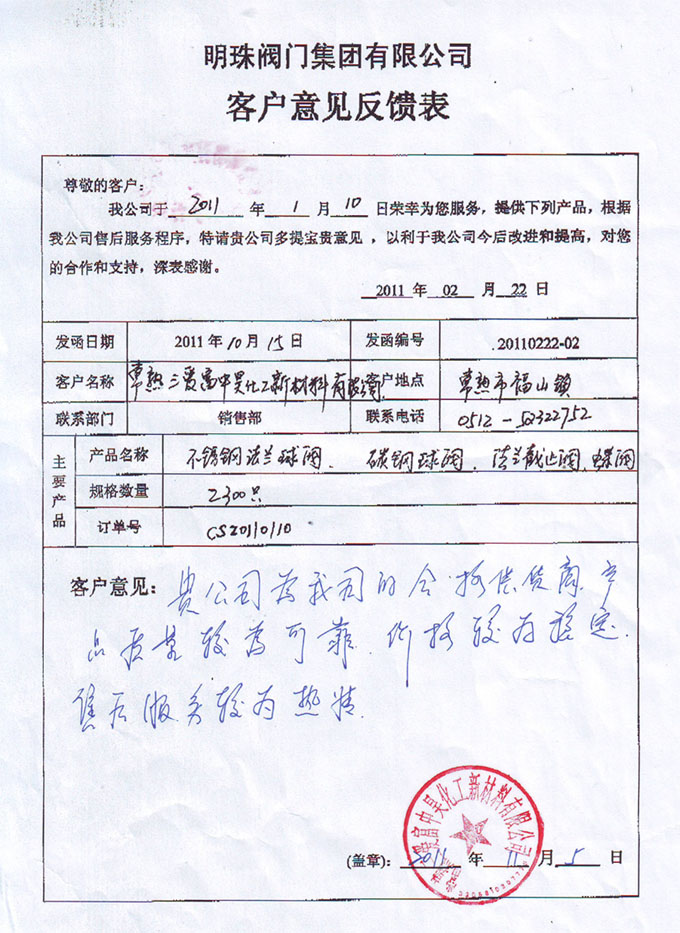 明珠阀门集团有限公司
客户意见反馈表
尊敬的客户：
我公司于 2011 年 1 月 10 日荣幸为您服务，提供下列产品，根据
我公司售后服务程序，特请贵公司多提宝贵意见，以利于我公司今后改进和提高，对您
的合作和支持，深表感谢。
2011 年 02 月 22 日
发函日期 2011 年 10 月 15 日 发函编号 20110222-02
客户名称 常熟三爱富中昊化工新材料有限公司 客户地点 常熟市福山镇
联系部门 销售部 联系电话 0512-52322752
主要产品
产品名称 不锈钢法兰球阀、碳钢球阀、法兰截止阀、蝶阀
规格数量 2300只
订单号 CS20110110
客户意见：贵公司为我司的合格供货商，产
品质量较为可靠，价格较为稳定，
售后服务较为热情。
富中昊化工新材料有限公司
(盖章)： 2011 年 11 月 5 日